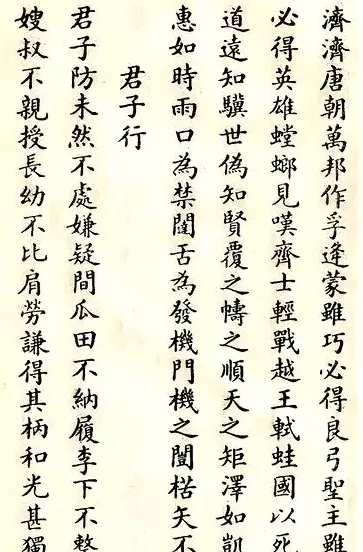 濟濟唐朝萬邦作孚逢蒙雖巧必得良弓聖主雖
必得英雄螳螂見嘆齊士輕戰越王軾蛙國以死
道遠知驥世偽知賢覆之幬之順天之矩澤如凱
惠如時雨口為禁闥舌為發機門機之闓楛矢不
君子行
君子防未然不處嫌疑間瓜田不納履李下不整
嫂叔不親授長幼不比肩勞謙得其柄和光甚獨